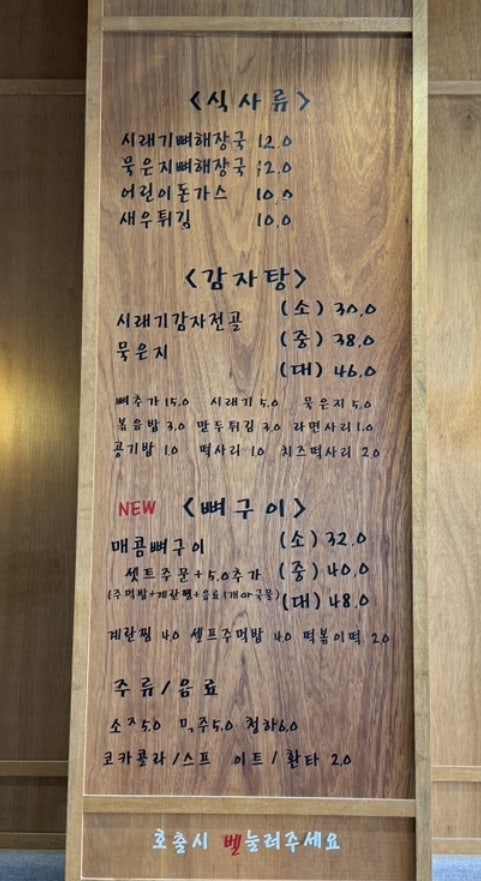 <식사류>
시래기뼈해장국 12.0
묵은지뼈해장국 12.0
어린이돈가스 10.0
새우튀김 10.0
<감자탕>
시래기감자전골 (소) 30.0
묵은지 (중) 38.0
(대) 46.0
뼈추가 15.0 시래기 5.0 묵은지 5.0
볶음밥 3.0 만두튀김 3.0 라면사리 1.0
공기밥 1.0 떡사리 1.0 치즈떡사리 2.0
NEW <뼈구이>
매콤뼈구이 (소) 32.0
셋트주문+5.0추가 (중) 40.0
(주먹밥+계란찜+음료1개 국물) (대) 48.0
계란찜 4.0 셀프주먹밥 4.0 떡볶이떡 2.0
주류/음료
소주5.0 맥주5.0 청하6.0
코카콜라/스프 이트/환타 2.0
호출시 벨눌러주세요